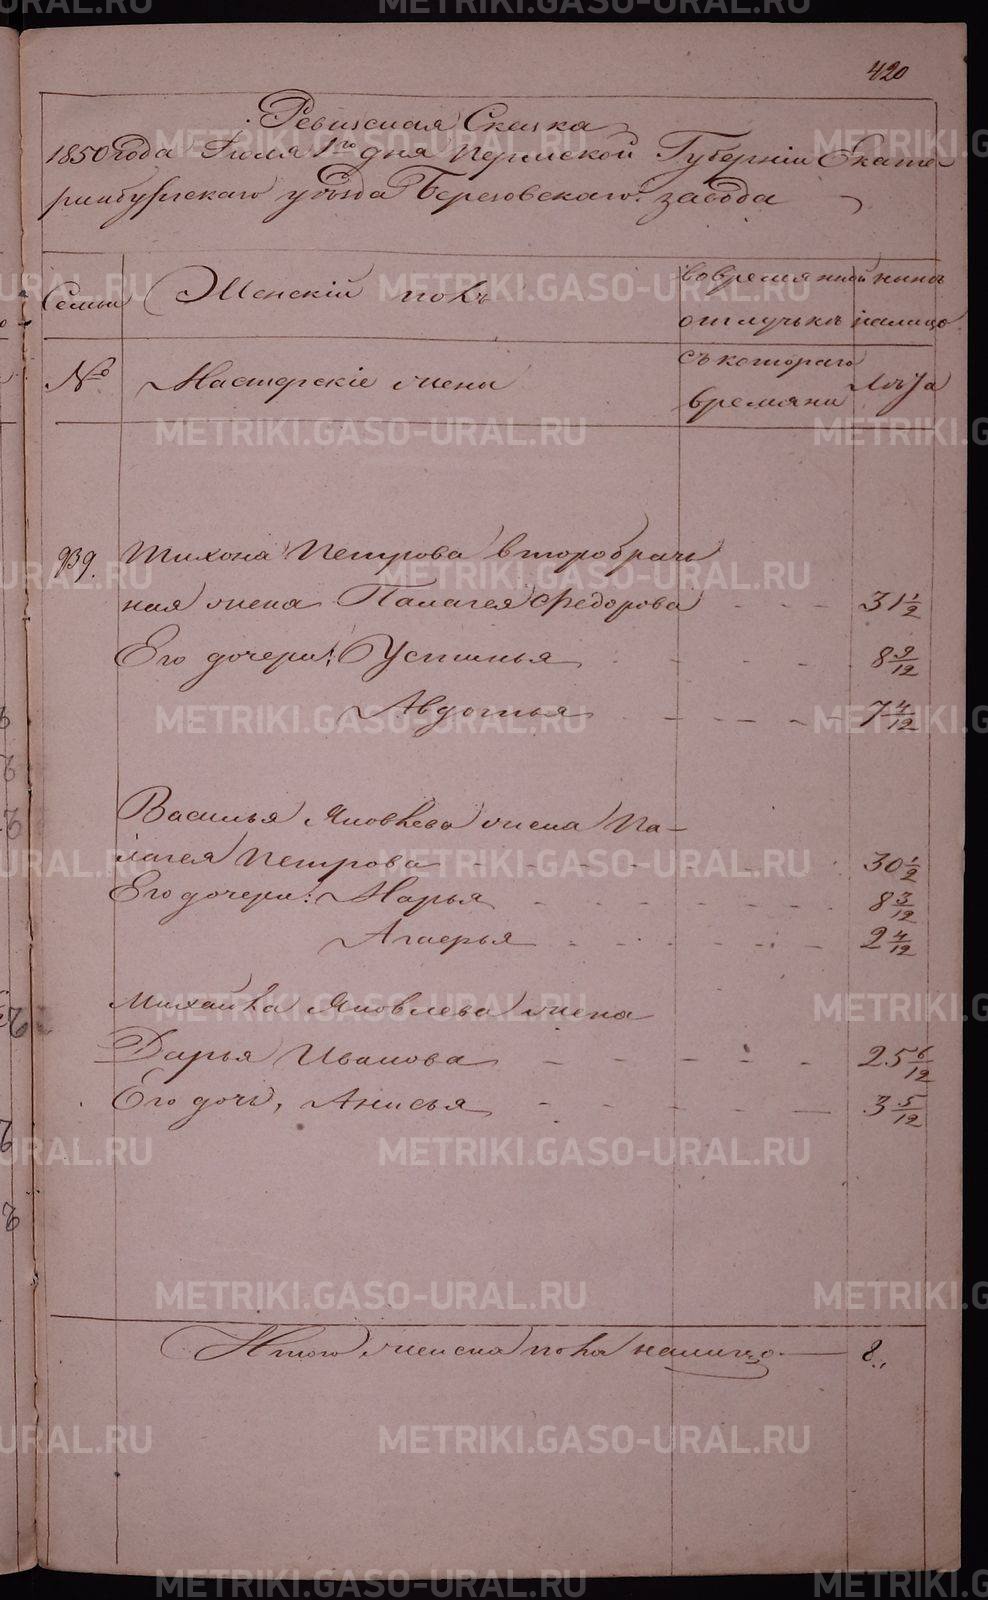 420
Ревизская Сказка
1850 года Июля 1го дня Пермской Губерніи Екате-
ринбургскаго уѣзда Березовскаго завода
Семьи Женскій полъ во время отлучькѣ нынѣ налицо
№ Мастерскіе жены съ котораго времяни Лѣта
939. Тихона Петрова второбрачь
ная жена Палагея Федорова 31 1/2
Его дочери: Устинья 8 9/12
Авдотья 7 4/12
Василья Яковлева жена Па-
лагея Петрова 30 1/2
Его дочери: Марья 8 3/12
Агаферья 2 4/12
Михайла Яковлева жена
Дарья Иванова 25 6/12
Его дочь, Анисья 3 5/12
Итого женска пола налицо 8.
METRIKI.GASO-URAL.RU